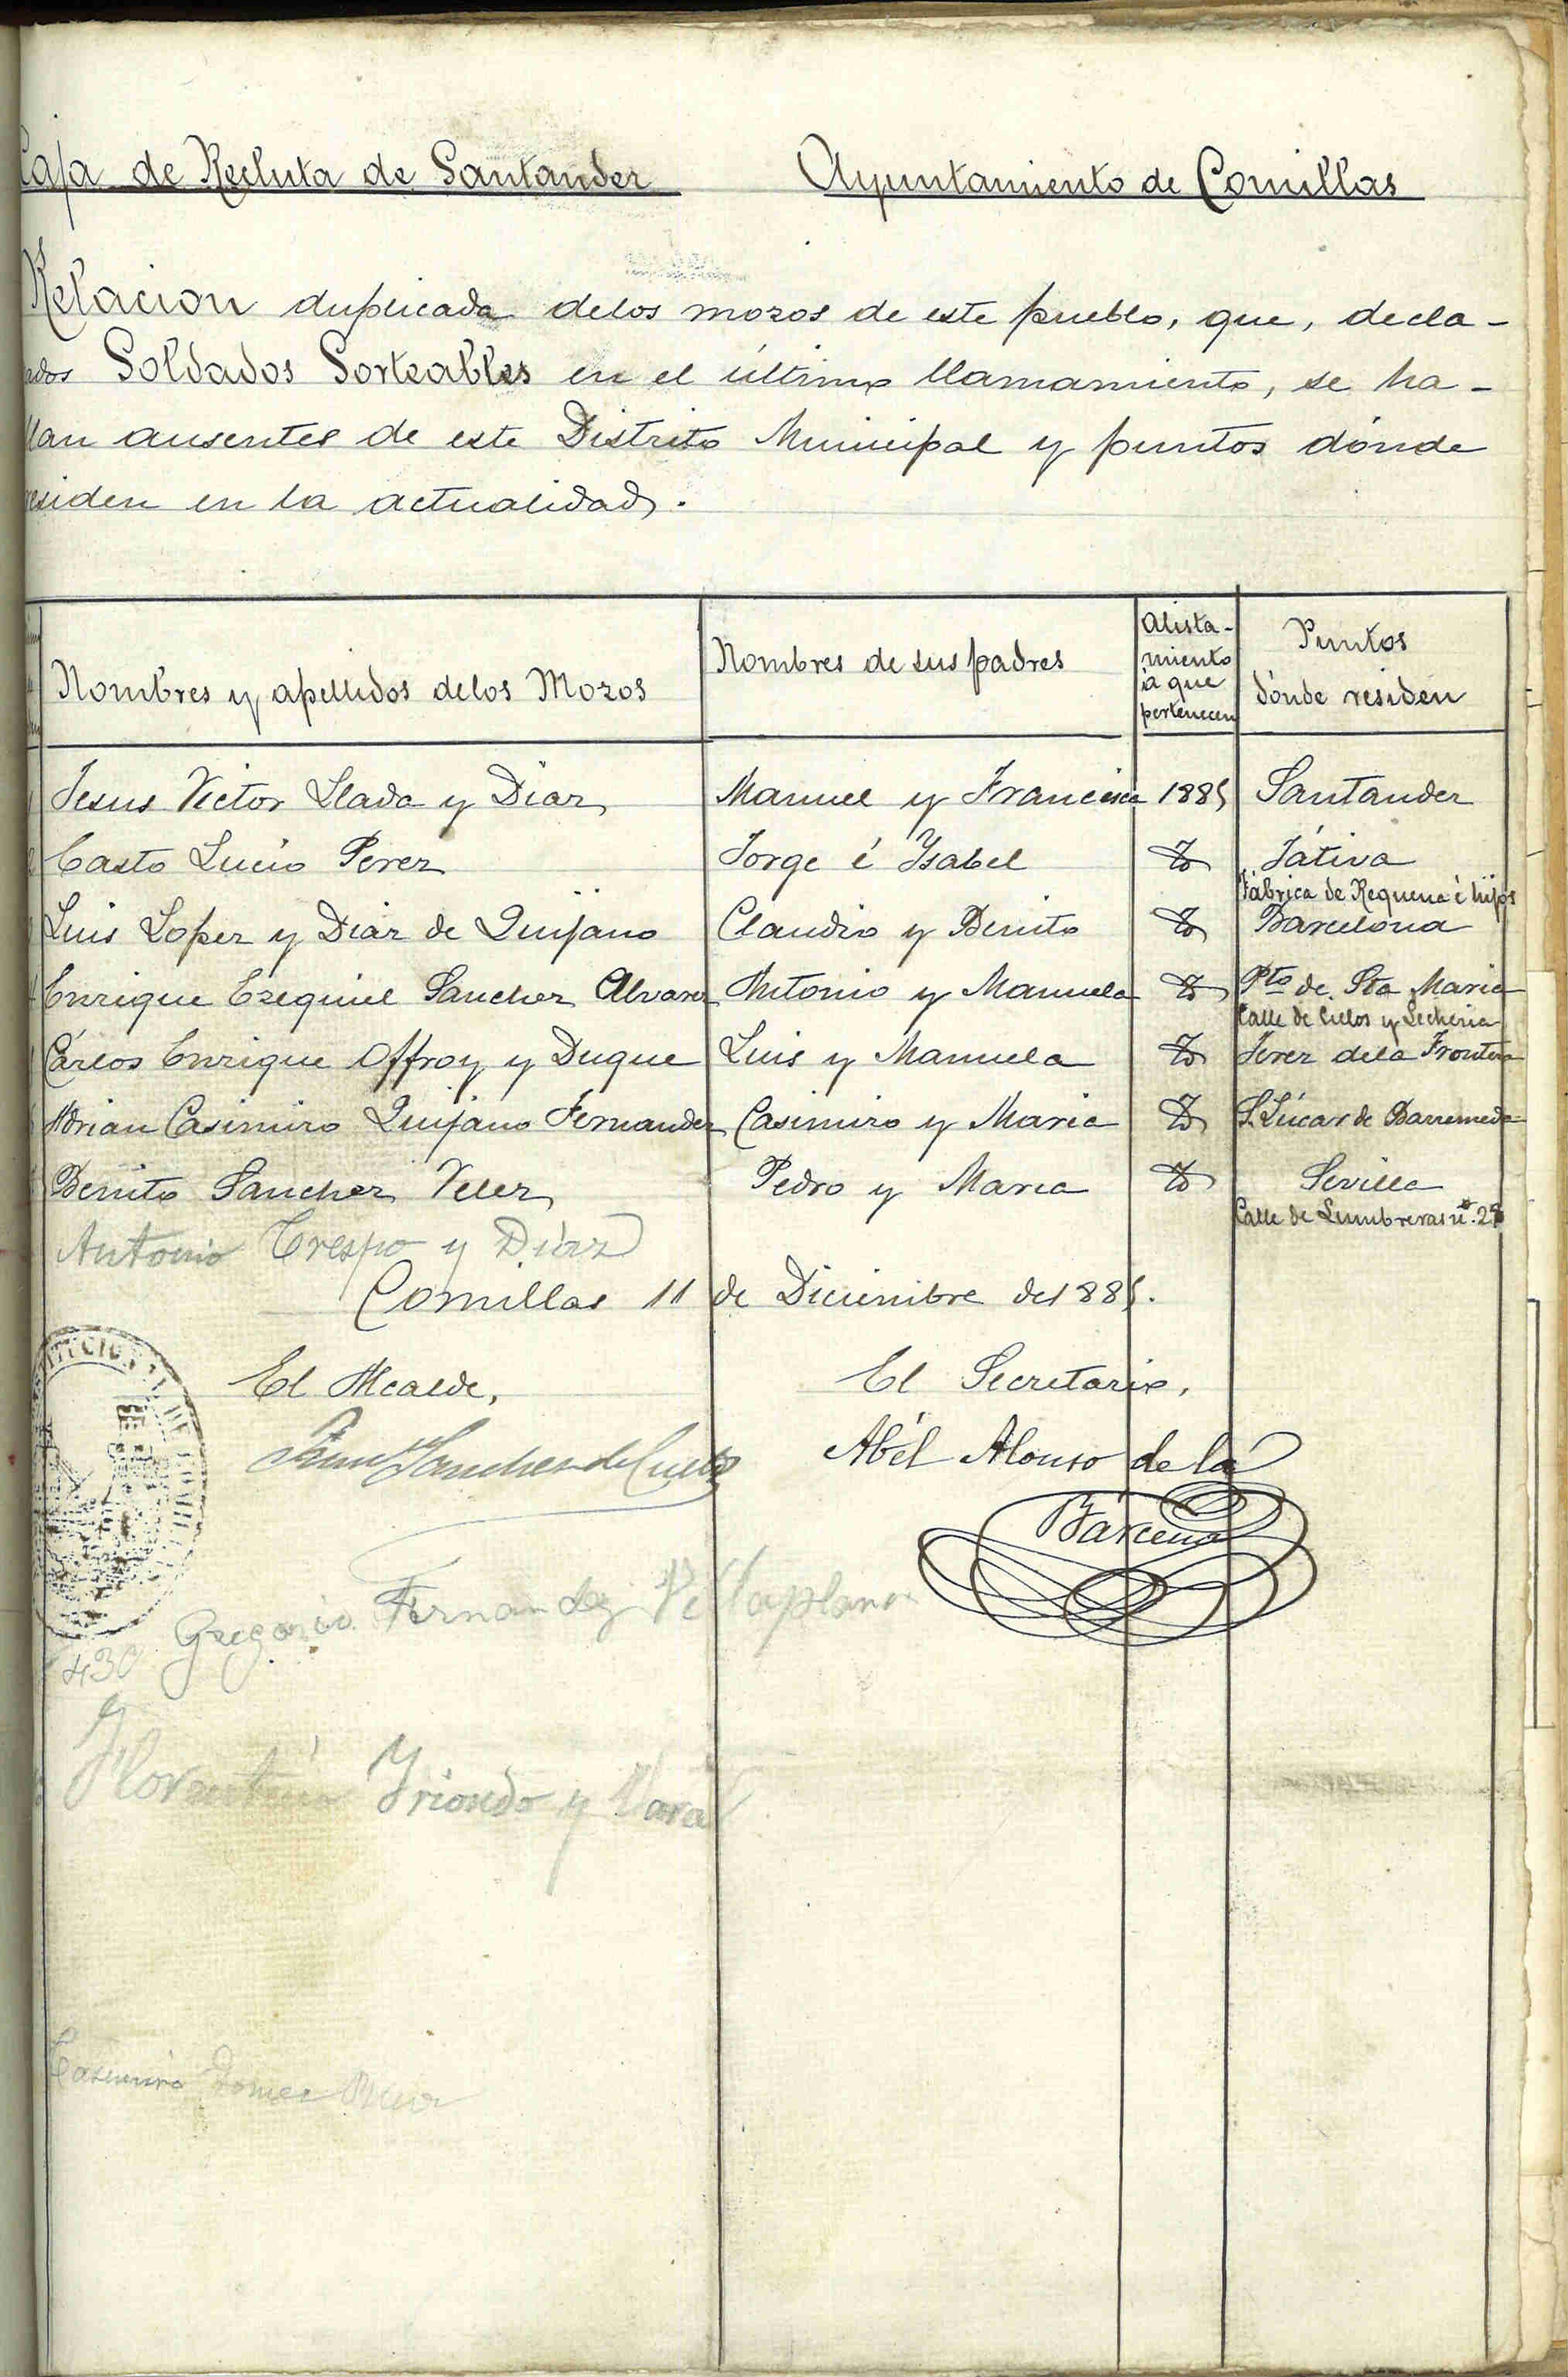 Caja de Recluta de Santander Ayuntamiento de Comillas
Relacion duplicada delos mozos de este pueblo, que, decla-
ados Soldados Sorteables en el último llamamiento, se ha-
llan ausentes de este Distrito Municipal y puntos dónde
residen en la actualidad.
Nombres y apellidos delos Mozos Nombres de sus padres Alista-miento á que pertenecen Puntos dónde residen
Jesus Victor Llada y Diaz Manuel y Francisca 1885 Santander
Casto Lucio Perez Jorge é Ysabel Id Játiva
Fábrica de Requena é hijos
Luis Lopez y Diaz de Quijano Claudio y Benita Id Barcelona
Enrique Ezequiel Sanchez Alvarez Antonio y Manuela Id Pto de Sta Maria
Calle de Cielos y Lecheria
Cárlos Enrique Offroy y Duque Luis y Manuela Id Jerez dela Frontera
Adrian Casimiro Quijano Fernandez Casimiro y Maria Id S. Lúcar de Barrameda
Benito Sanchez Velez Pedro y Maria Id Sevilla
Calle de Lumbreras nº.
Antonio Crespo y Diaz
Comillas 11 de Diciembre de 1885.
El Alcalde, El Secretario,
Sanchez de Cueto Abél Alonso de la
Bárcena
Gregorio Fernandez Villaplana
430
Florentino Yriondo y
Casimiro Gomez